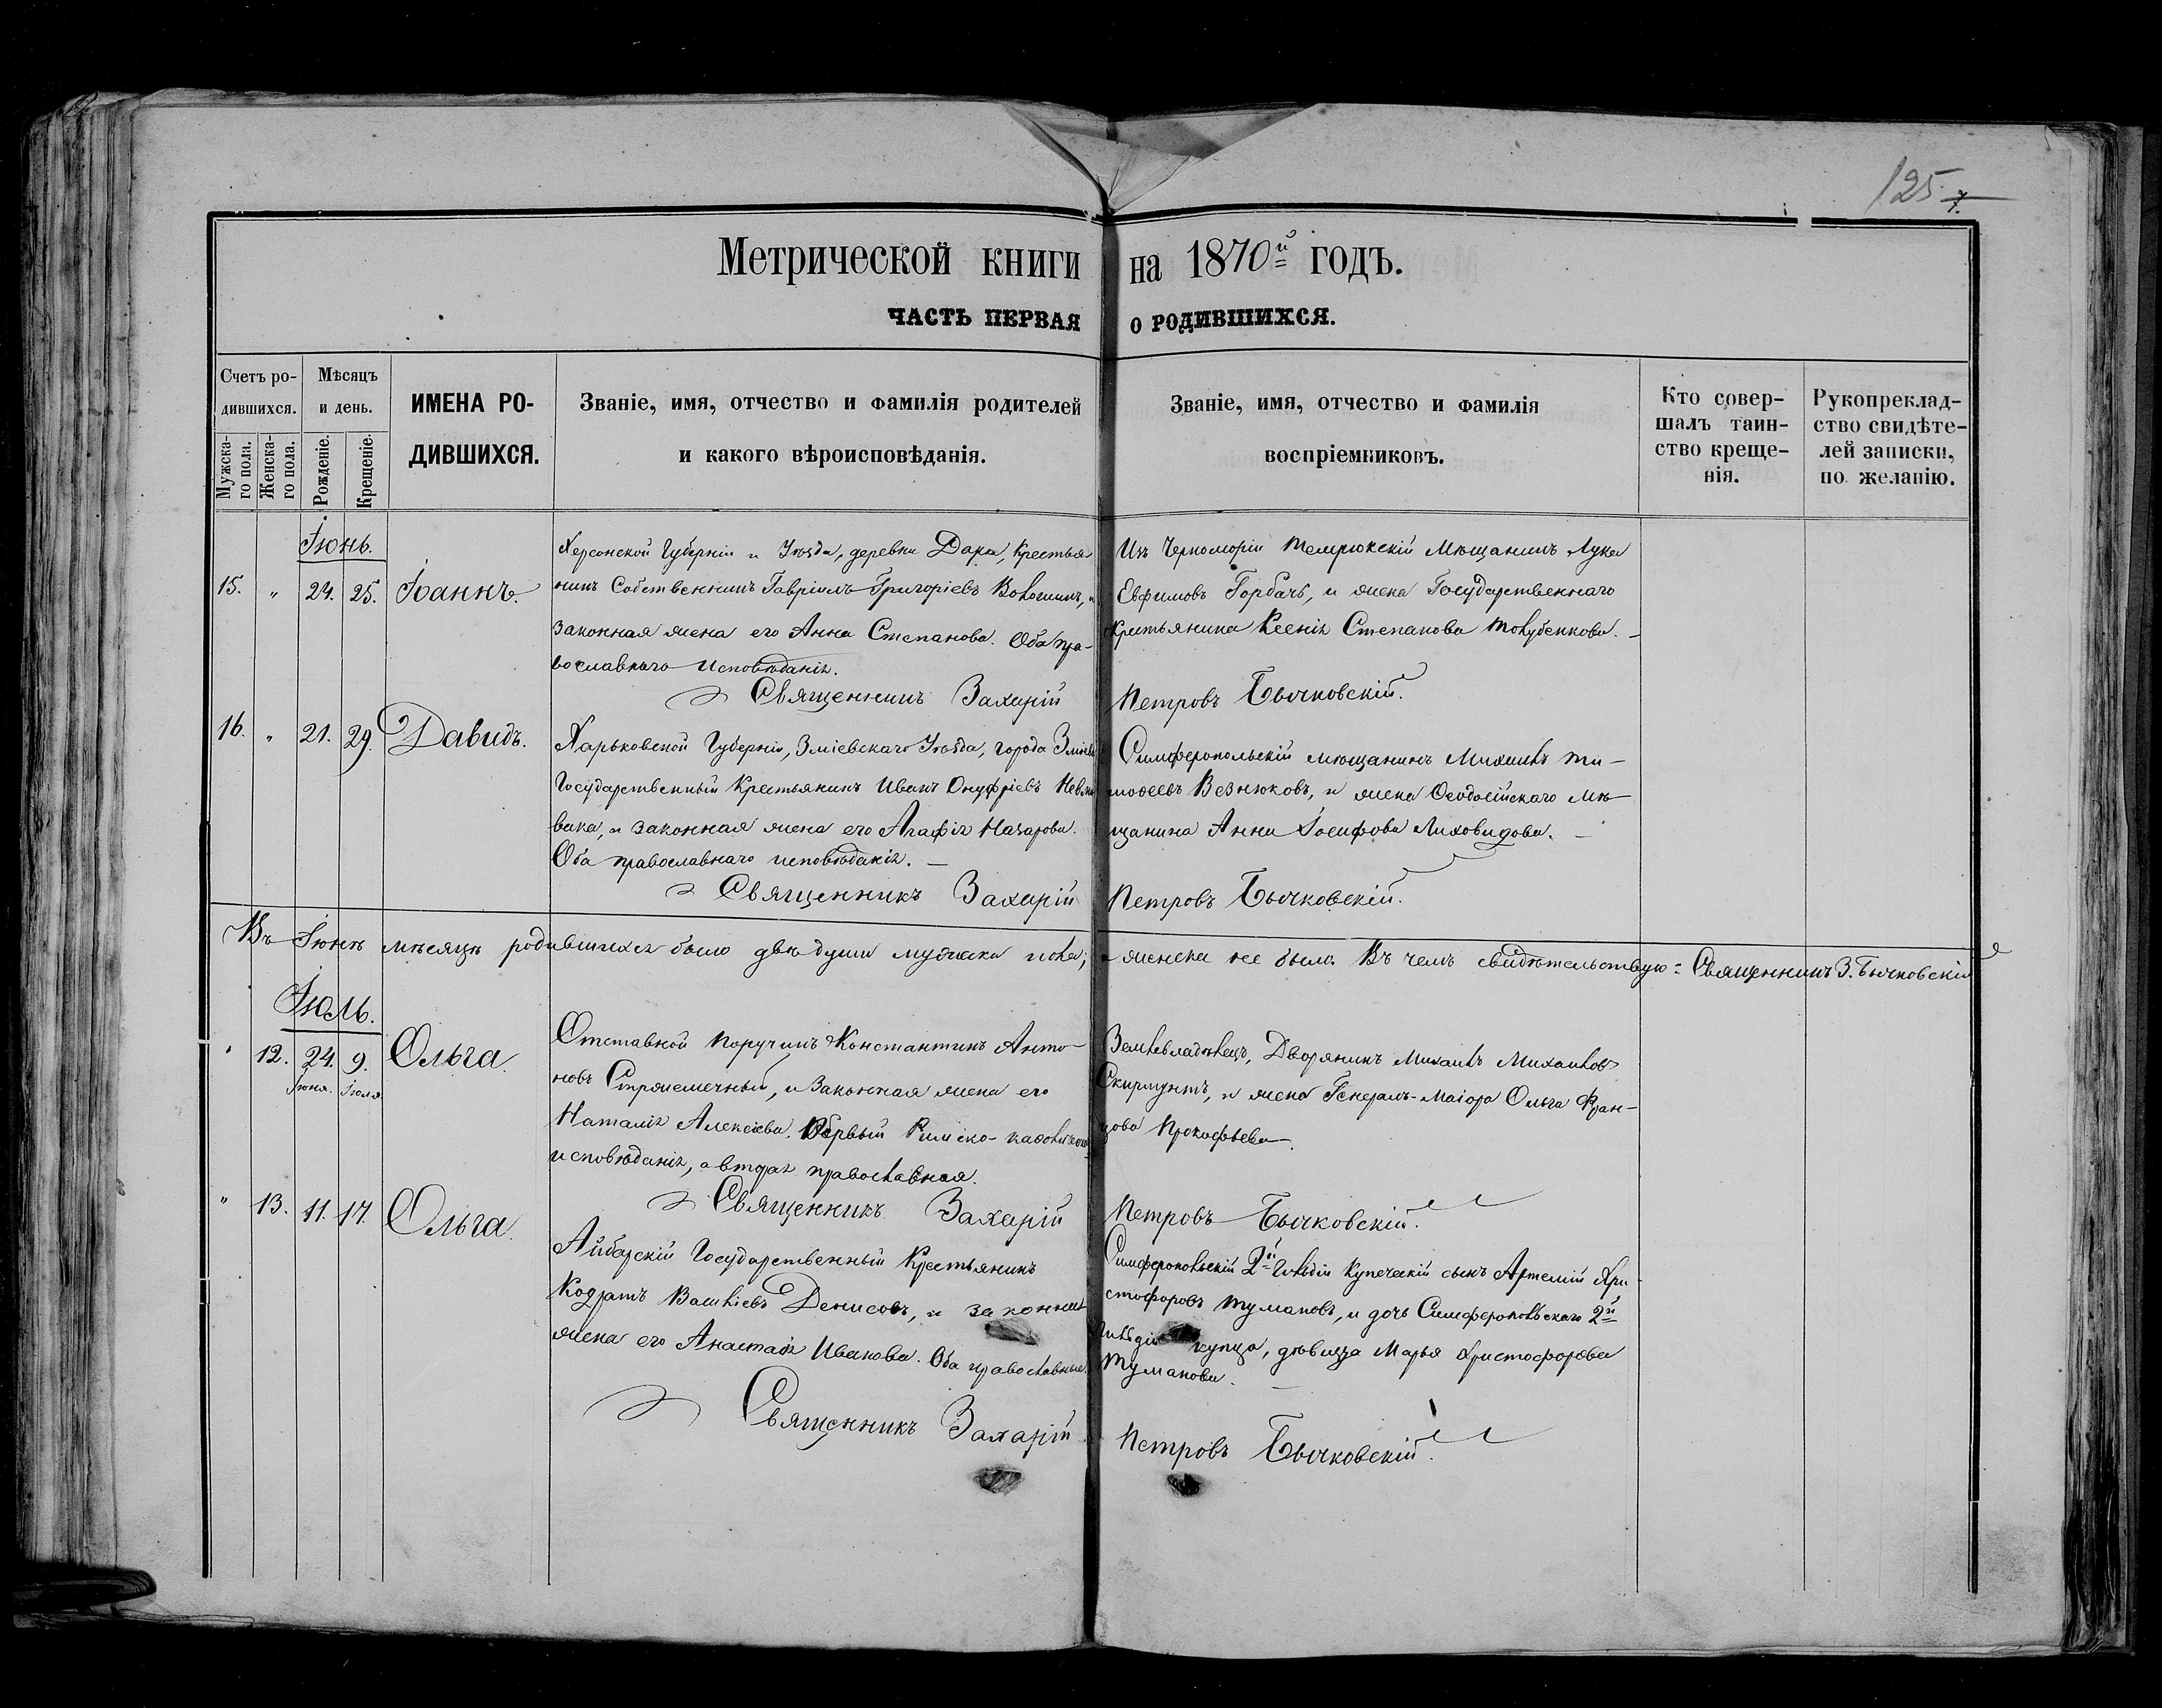 125
7.
Метрической книги на 1870й годъ.
ЧАСТЬ ПЕРВАЯ О РОДИВШИХСЯ.
Счетъ ро-
дившихся.
Мужска-
го пола.
Женска-
го пола.
Мѣсяцъ
и день.
Рожденіе.
Крещеніе.
ИМЕНА РО-
ДИВШИХСЯ.
Званіе, имя, отчество и фамилія родителей
и какого вѣроисповѣданія.
Званіе, имя, отчество и фамилія
воспріемниковъ.
Кто совер-
шалъ таин-
ство креще-
нія.
Рукоприклад-
ство свидѣте-
лей записки,
по желанію.
Іюнь.
15. " 24. 25. Іоаннъ.
Херсонской Губерніи и Уѣзда, деревни Дара, крестья
нинъ Собственникъ Гавріилъ Григоріевъ Волошинъ, и
законная жена его Анна Степанова. Оба пра-
вославнаго исповѣданія.
Изъ Черноморіи Темрюкскій Мѣщанинъ Лука
Евфимовъ Горбачъ, и жена Государственнаго
крестьянина Ксенія Степанова
Священникъ Захарій Петровъ Бычковскій.
16. " 21. 29. Давидъ.
Харьковской Губерніи, Зміевскаго Уѣзда, города Зміева
Государственный Крестьянинъ Иванъ Онуфріевъ
и законная жена его Агафія Назарова.
Оба православнаго исповѣданія.
Симферопольскій мѣщанинъ Михаилъ Ти-
мофеевъ Везнюковъ, и жена Ѳеодосійскаго мѣ-
щанина Анна Іосифова Лиховидова.
Священникъ Захарій Петровъ Бычковскій.
Въ Іюнѣ мѣсяцѣ родившихся было двѣ души мужеска пола; а женска не было. Въ чемъ свидѣтельствую = Священникъ З. Бычковскій
Іюль.
" 12. 24. 9. Ольга.
Іюня. Іюля
Отставной поручикъ Константинъ Анто-
новъ Стржемечный, и законная жена его
Наталія Алексѣева. Первый Римско-католическаго
исповѣданія, а вторая православная.
Землевладѣлецъ, Дворянинъ Михаилъ Михаиловъ
Скирмунтъ, и жена Генералъ-Маіора Ольга Фран-
цова Прокофьева.
Священникъ Захарій Петровъ Бычковскій.
" 13. 11. 17. Ольга.
Айбарскій Государственный Крестьянинъ
Кодратъ Васильевъ Денисовъ, и законная
жена его Анастасія Иванова. Оба православные.
Симферопольскій 2й Гильдіи Купеческій сынъ Артемій Хри-
стофоровъ Тумановъ, и дочь Симферопольскаго 2й
Гильдіи купца, дѣвица Марья Христофорова
Туманова.
Священникъ Захарій Петровъ Бычковскій.